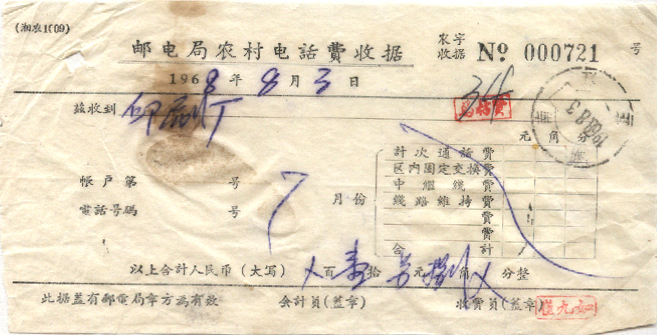 (湘农1(09)
邮电局农村电話費收据
农字
收据 № 000721 号
1968年8月3日
茲收到 印刷厂
314
1968.8.3
元角分
計次通話費
区内固定交換費
帐户第 号 中継线費
7 月份
电話号碼 号 线路維持費
費
費
合 計
以上合計人民币(大写) 乂百 拾 元 角乂分整
此据盖有邮电局章方為有效 会計員(盖章) 收費員(盖章)